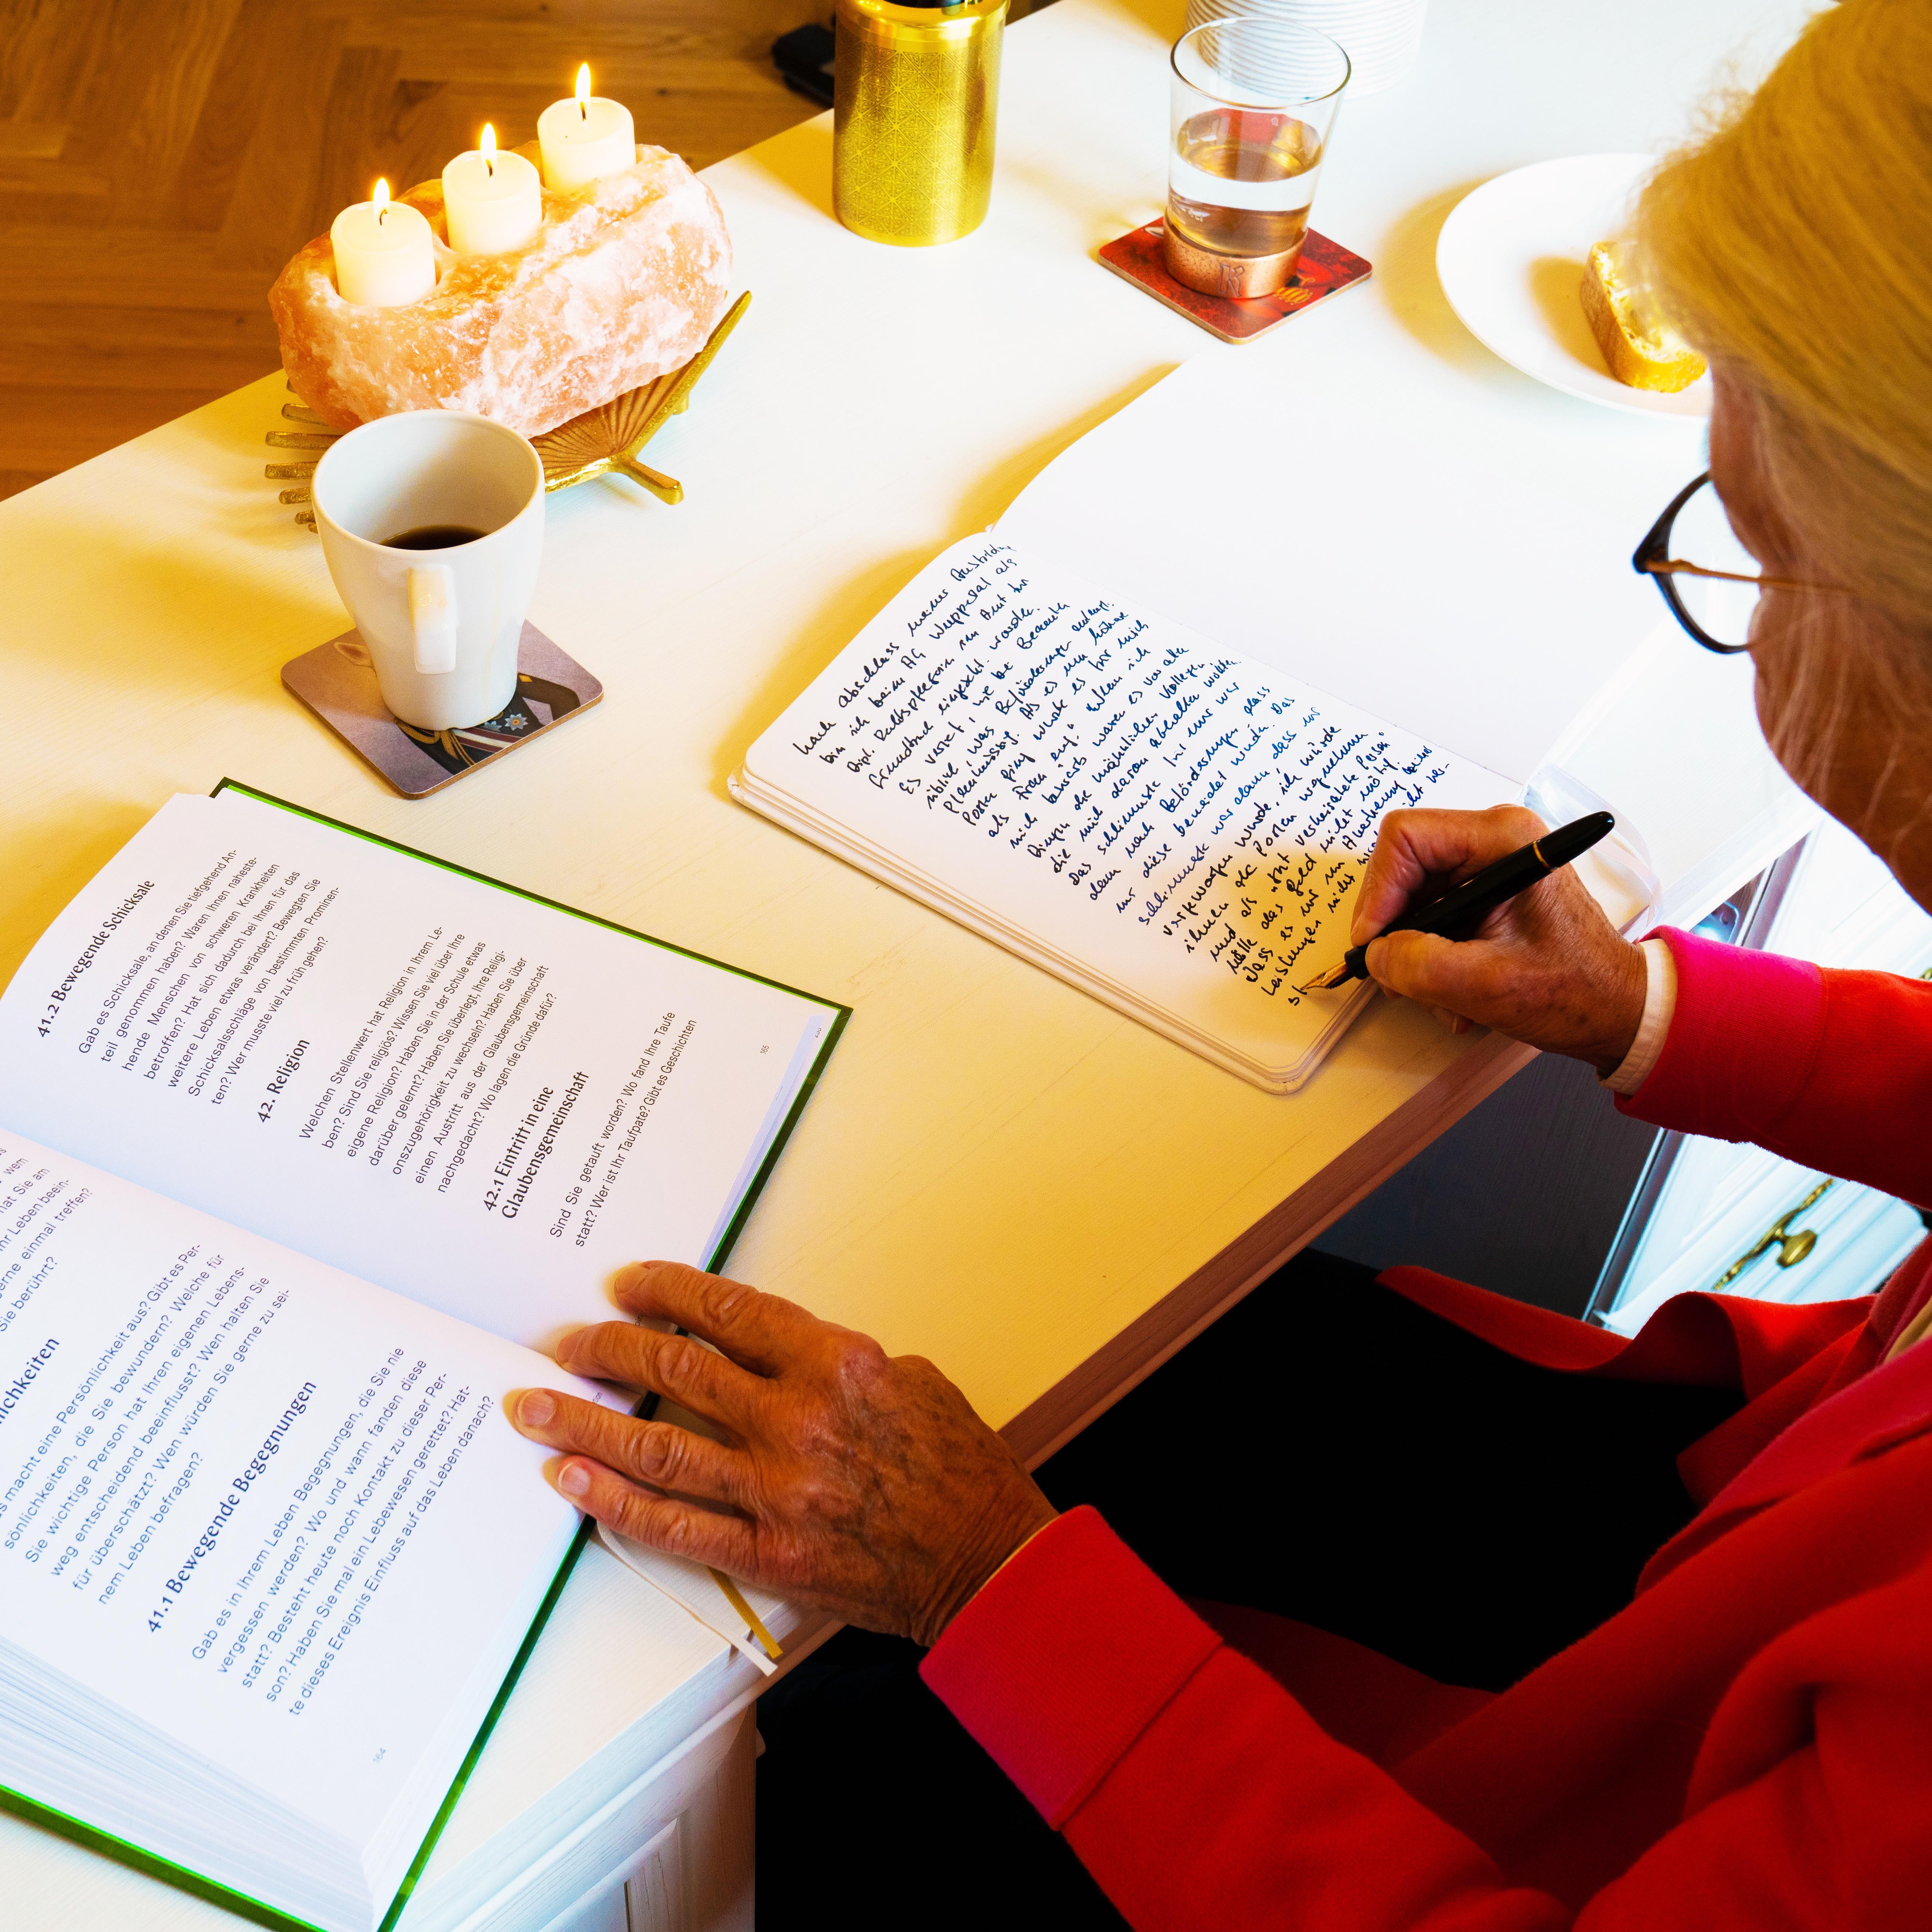 wem
hat Sie am
Ihr Leben beein-
gerne einmal treffen?
Sie berührt?
lichkeiten
macht eine Persönlichkeit aus? Gibt es Per-
sönlichkeiten, die Sie bewundern? Welche für
Sie wichtige Person hat Ihren eigenen Lebens-
weg entscheidend beeinflusst? Wen halten Sie
für überschätzt? Wen würden Sie gerne zu sei-
nem Leben befragen?
41.1 Bewegende Begegnungen
Gab es in Ihrem Leben Begegnungen, die Sie nie
vergessen werden? Wo und wann fanden diese
statt? Besteht heute noch Kontakt zu dieser Per-
son? Haben Sie mal ein Lebewesen gerettet? Hat-
te dieses Ereignis Einfluss auf das Leben danach?
164
41.2 Bewegende Schicksale
Gab es Schicksale, an denen Sie tiefgehend An-
teil genommen haben? Waren Ihnen naheste-
hende Menschen von schweren Krankheiten
betroffen? Hat sich dadurch bei Ihnen für das
weitere Leben etwas verändert? Bewegten Sie
Schicksalsschläge von bestimmten Prominen-
ten? Wer musste viel zu früh gehen?
42. Religion
Welchen Stellenwert hat Religion in Ihrem Le-
ben? Sind Sie religiös? Wissen Sie viel über Ihre
eigene Religion? Haben Sie in der Schule etwas
darüber gelernt? Haben Sie überlegt, Ihre Religi-
onszugehörigkeit zu wechseln? Haben Sie über
einen Austritt aus der Glaubensgemeinschaft
nachgedacht? Wo lagen die Gründe dafür?
42.1 Eintritt in eine
Glaubensgemeinschaft
Sind Sie getauft worden? Wo fand Ihre Taufe
statt? Wer ist Ihr Taufpate? Gibt es Geschichten
165
Nach Abschluss meiner Ausbildung
bin ich beim AG Wuppertal als
Dipl. Rechtspflegerin im Amt für
Grundbuch eingesetzt worden.
Es verlief, wie bei Beamten
üblich, was Beförderungen anbelangt
planmässig. Als es um höhere
Posten ging wurde es für mich
als Frau eng. Indem ich
mich bewarb waren es vor allem
Dinge die männlichen Kollegen
die mich davon abhalten wollten.
Das schlimmste für mich war
dann nach Beförderungen dass
mir diese beneidet wurden. Das
schlimmste war dann dass mir
vorgeworfen wurde, ich würde
ihnen die Posten wegnehmen
und als "gut verheiratete Person"
hätte das Geld nicht nötig.
Dass es mir um Anerkennung meiner
Leistungen nicht
st